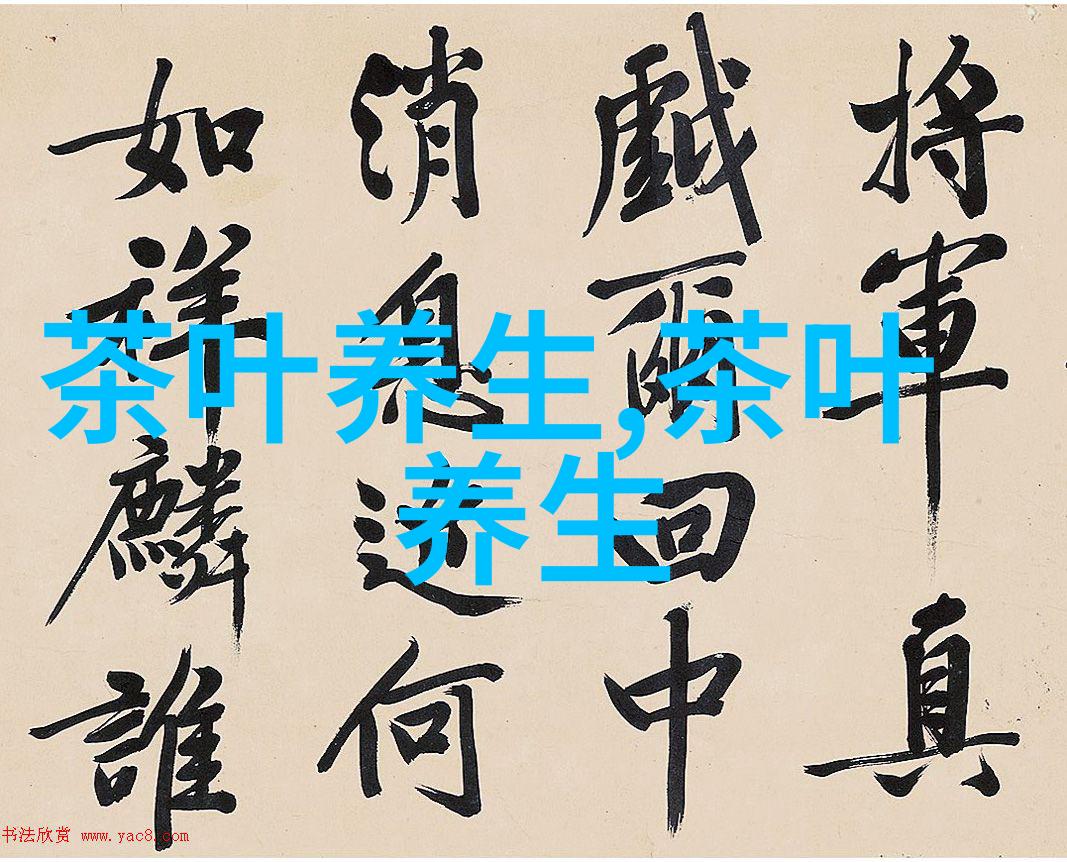 茶叶养生,茶叶
养生
将軍真
戲爾回中
消息何
如祥麟誰
书法欣赏 www.yac8.com